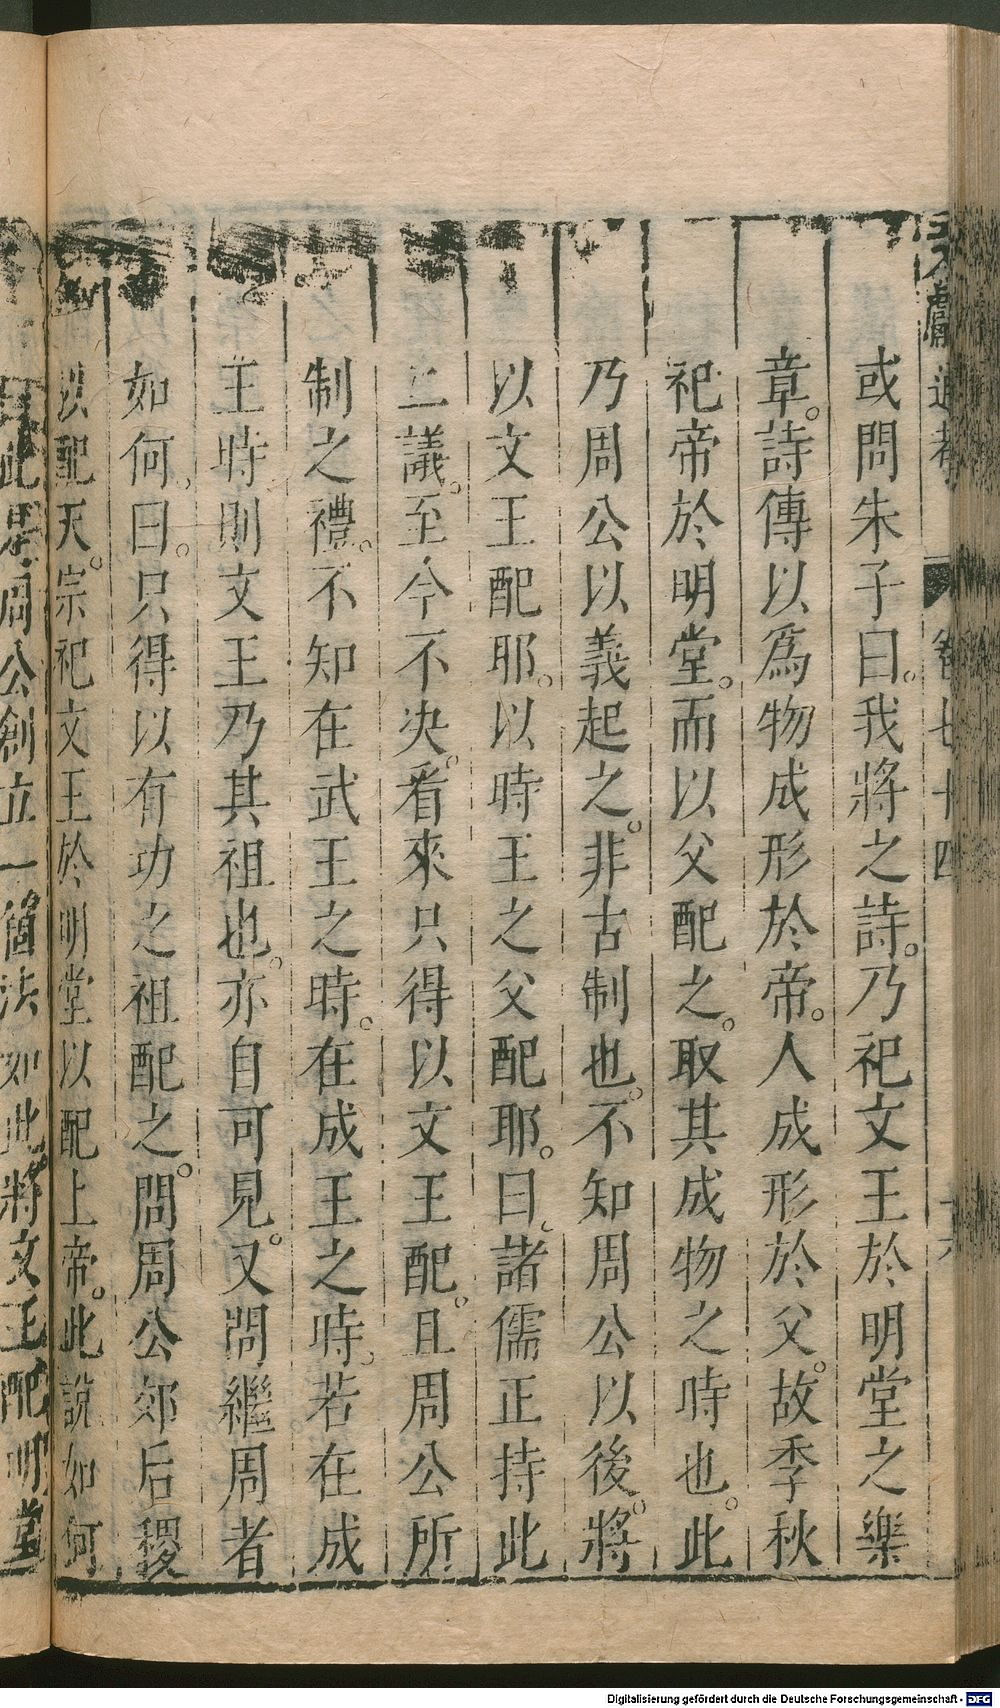 文獻通考 卷七十四 十六
或問朱子曰。我將之詩。乃祀文王於明堂之樂
章。詩傳以爲物成形於帝。人成形於父。故季秋
祀帝於明堂。而以父配之。取其成物之時也。此
乃周公以義起之。非古制也。不知周公以後。將
以文王配耶。以時王之父配耶。曰。諸儒正持此
二議。至今不決。看來只得以文王配。且周公所
制之禮。不知在武王之時。在成王之時。若在成
王時則文王乃其祖也。亦自可見。又問繼周者
如何。曰。只得以有功之祖配之。問周公郊后稷
以配天。宗祀文王於明堂以配上帝。此說如何
曰此是周公創立一箇法如此將文王配明堂
Digitalisierung gefördert durch die Deutsche Forschungsgemeinschaft - DFG